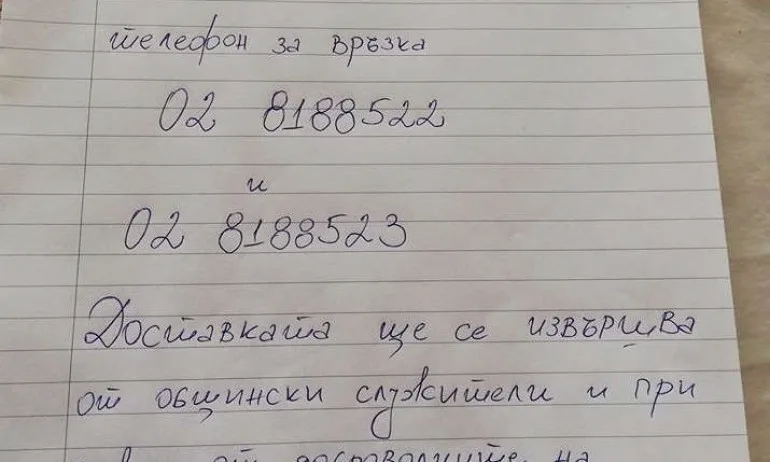 телефон за връзка
02 8188522
и
02 8188523
Доставката ще се извършва
от общински служители и при
на